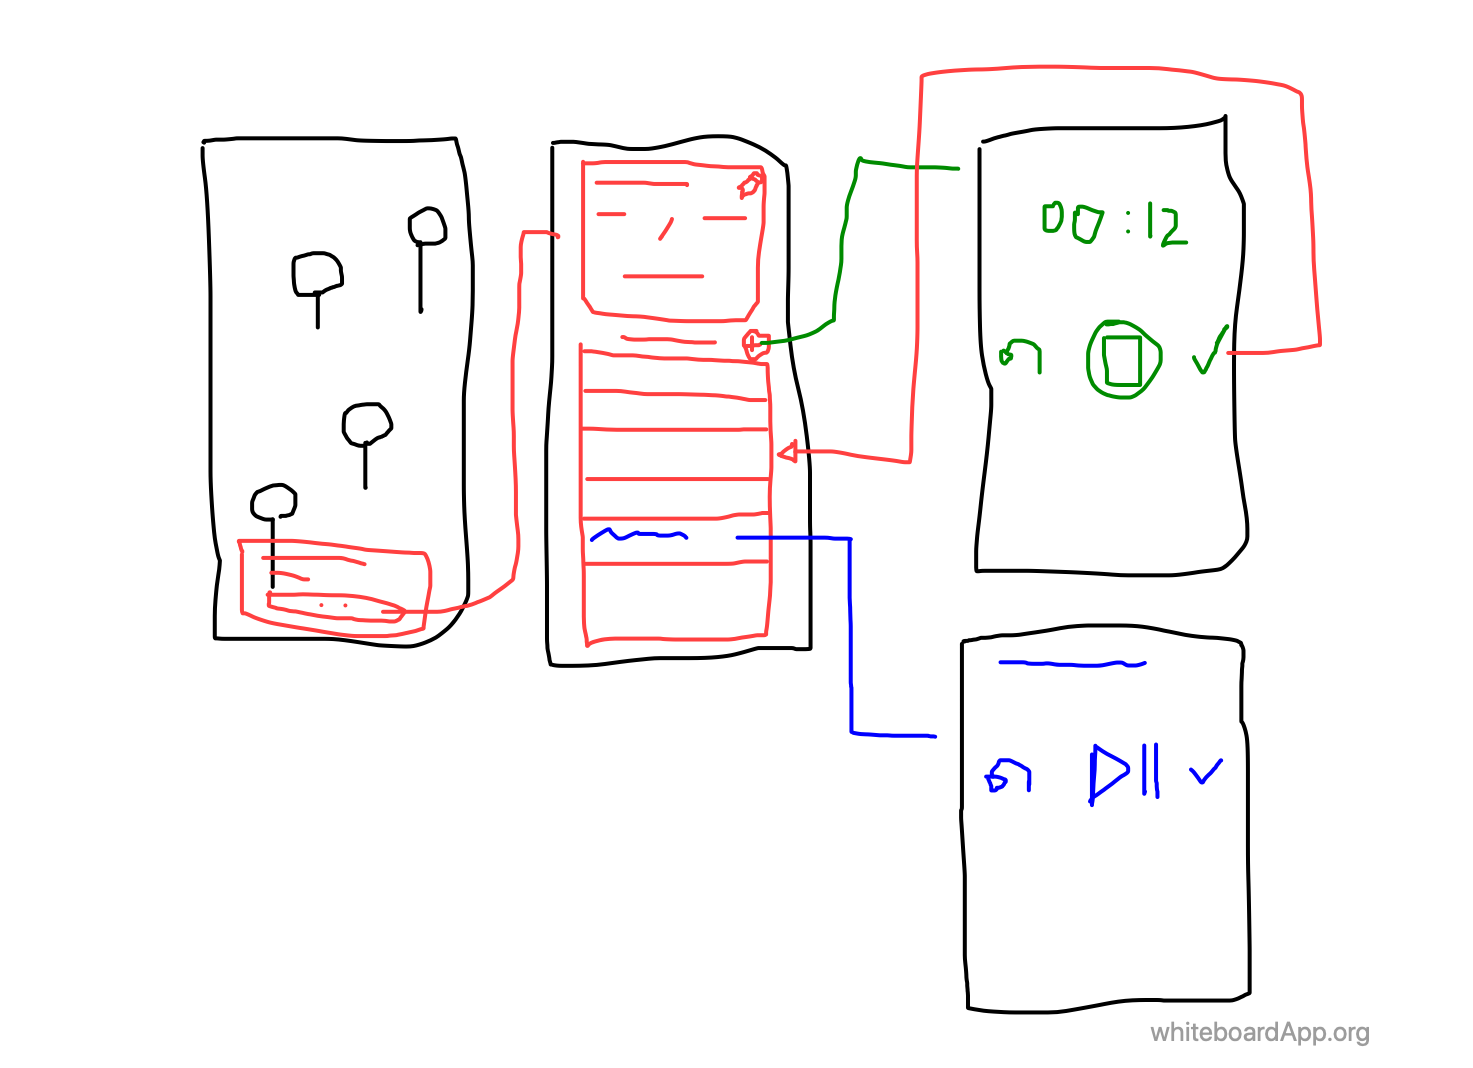 00:12
whiteboardApp.org